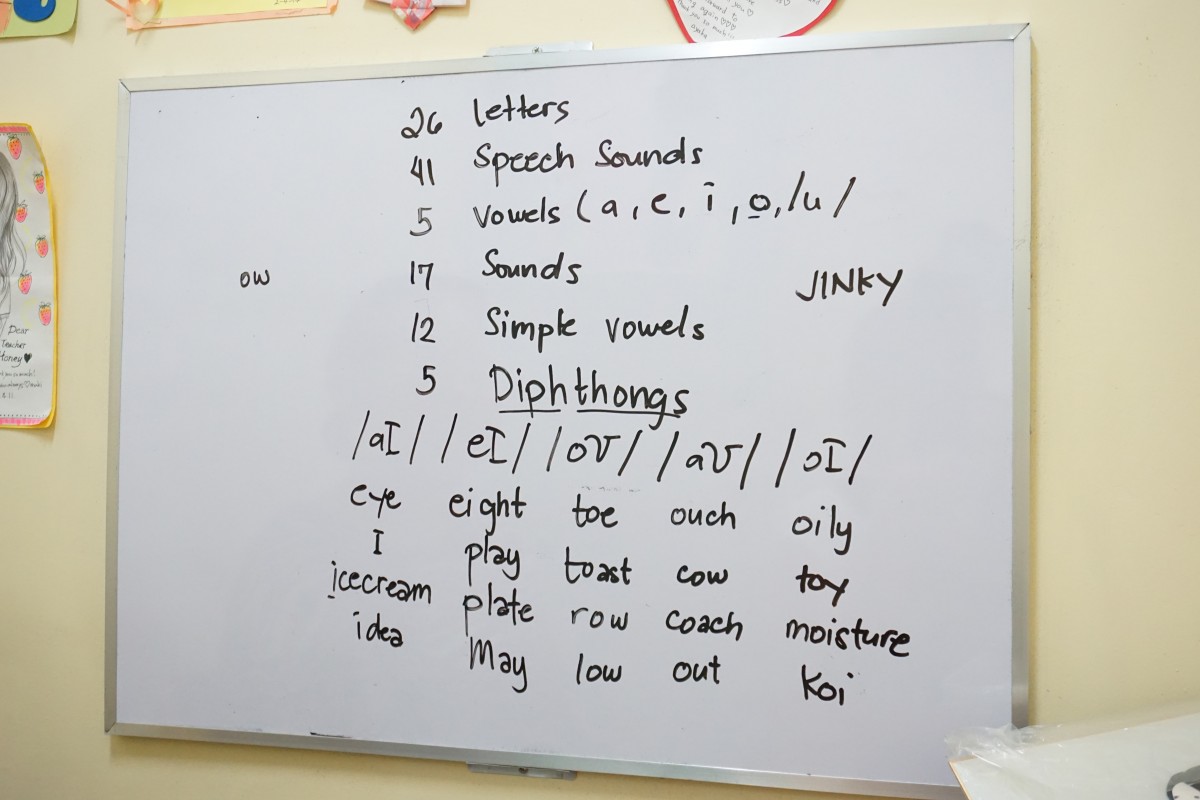 26 letters
41 Speech Sounds
5 vowels ( a, e, i, o, /u/
ow
17 Sounds
JINKY
12 Simple vowels
5 Diphthongs
/aI/ /eI/ /oʊ/ /aʊ/ /oI/
eye eight toe ouch oily
I play toast cow toy
icecream plate row coach moisture
idea May low out Koi
Dear
Teacher
Honey♥